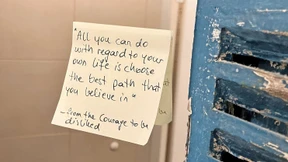 "All you can do
with regard to your
own life is choose
the best path that
you believe in"
-from the Courage to be
disliked